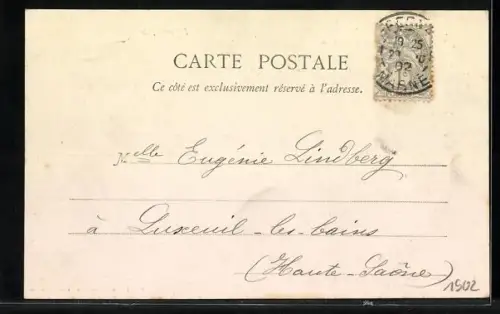 CARTE POSTALE
Ce côté est exclusivement réservé à l'adresse.
19 25
02
MARNE
Melle Eugénie Lindberg
à Luxeuil-les-bains
(Haute-Saône)
1902